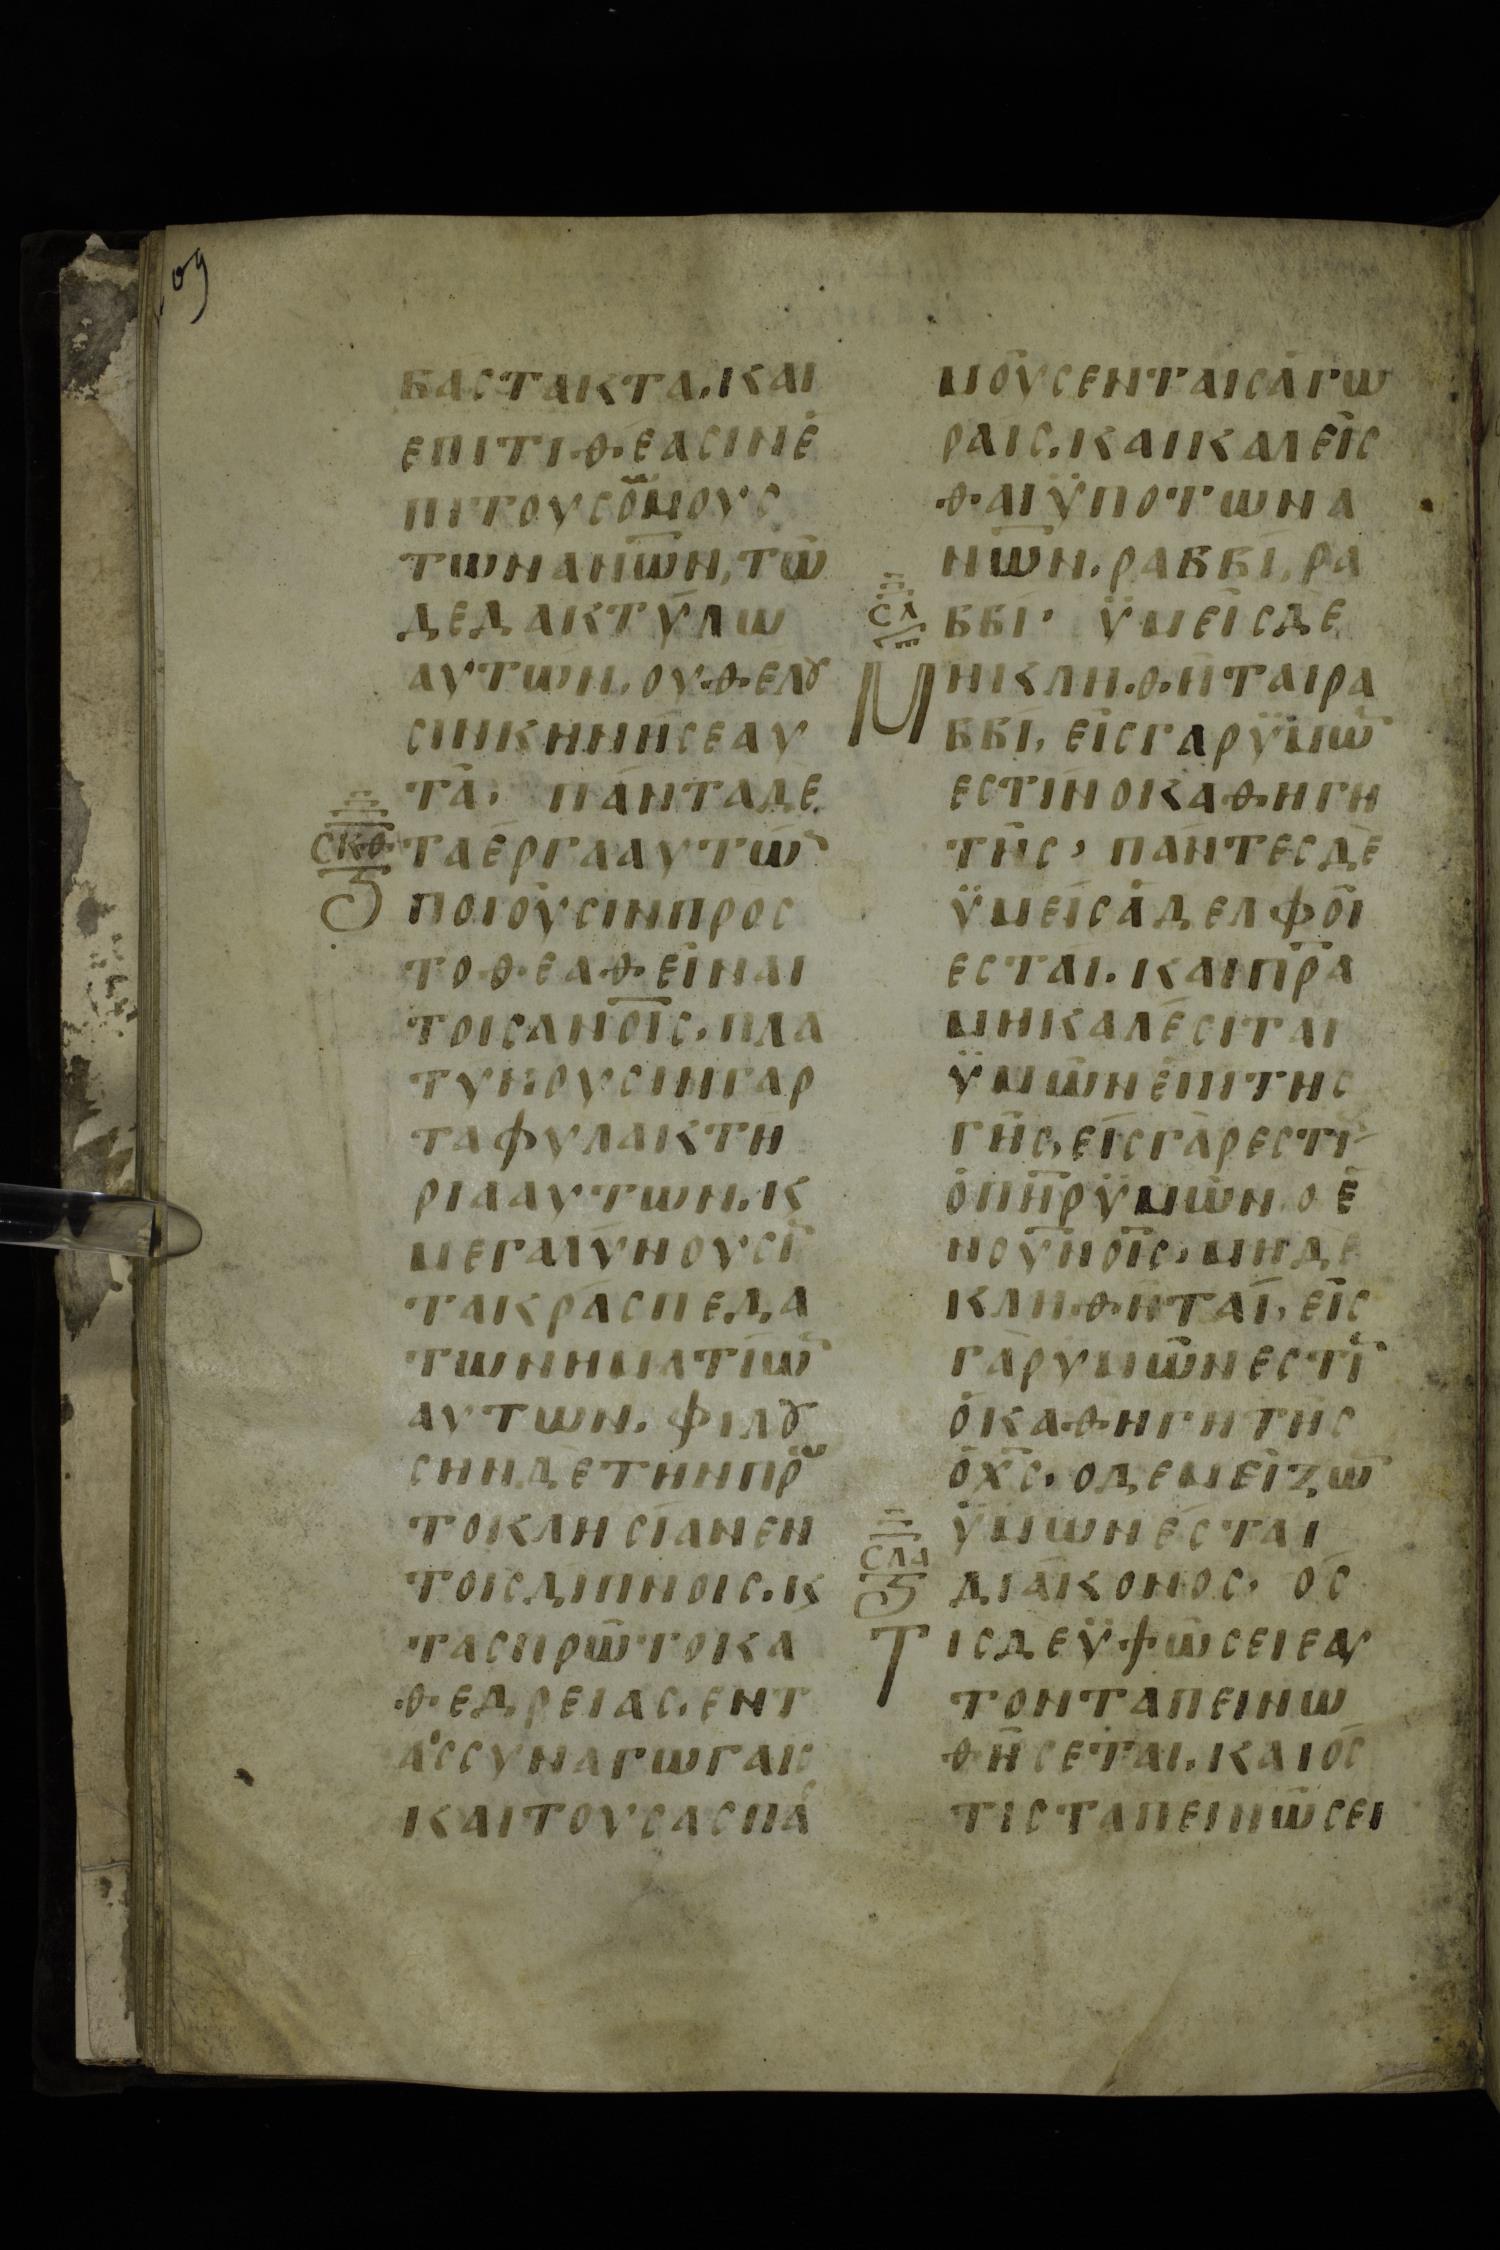 ΒΑСΤΑΚΤΑ. ΚΑΙ
ΕΠΙΤΙΘΕΑСΙΝΕ
ΠΙΤΟΥСΟ̈ΜΟΥС
ΤΩΝΑΝ̅Ω̅Ν, ΤΩ̅
ΔΕΔΑΚΤΥΛΩ
ΑΥΤΩΝ. ΟΥΘΕΛȢ
СΙΝΚΗΝΗСΕΑΥ
ΤΑ. ΠΑΝΤΑΔΕ
СΚΘ ΤΑΕΡΓΑΑΥΤΩ̅
ΠΟΙΟΥСΙΝΠΡΟС
ΤΟΘΕΑΘΕΙΝΑΙ
ΤΟΙСΑΝ̅Ο̅Ι̅С. ΠΛΑ
ΤΥΝΟΥСΙΝΓΑΡ
ΤΑΦΥΛΑΚΤΗ
ΡΙΑΑΥΤΩΝ. Κ
ΜΕΓΑΛΥΝΟΥСΙ̅
ΤΑΚΡΑСΠΕΔΑ
ΤΩΝΗΜΑΤΙΩ̅
ΑΥΤΩΝ. ΦΙΛȢ
СΗΝΔΕΤΗΝΠΡΩ
ΤΟΚΛΗСΙΑΝΕΝ
ΤΟΙСΔΙΠΝΟΙС. Κ
ΤΑСΠΡΩΤΟΚΑ
ΘΕΔΡΕΙΑС. ΕΝΤ
ΑΙССΥΝΑΓΩΓΑΙС
ΚΑΙΤΟΥСΑСΠΑ
ΜΟΥСΕΝΤΑΙСΑΓΩ
ΡΑΙС. ΚΑΙΚΑΛΕΙС
ΘΑΙΫΠΟΤΩΝΑ
Ν̅Ω̅Ν. ΡΑΒΒΙ, ΡΑ
СΛ ΒΒΙ. ΫΜΕΙСΔΕ
ΜΗΚΛΗΘΗΤΑΙΡΑ
ΒΒΙ, ΕΙСΓΑΡΫΜΩ̅
ΕСΤΙΝΟΚΑΘΗΓΗ
ΤΗС, ΠΑΝΤΕСΔΕ
ΫΜΕΙСΑΔΕΛΦΟΙ
ΕСΤΑΙ. ΚΑΙΠ̅Ρ̅Α
ΜΗΚΑΛΕСΙΤΑΙ
ΫΜΩΝΕΠΙΤΗС
ΓΗС, ΕΙСΓΑΡΕСΤΙ̅
ΟΠ̅Η̅ΡΫΜΩΝ. ΟΕ
ΝΟΥ̅Ν̅Ο̅Ι̅С. ΜΗΔΕ
ΚΛΗΘΗΤΑΙ, ΕΙС
ΓΑΡΥΜΩΝΕСΤΙ̅
ΟΚΑΘΗΓΗΤΗС
ΟΧ̅С. ΟΔΕΜΕΙΖΩ̅
ΫΜΩΝΕСΤΑΙ
СΛΑ ΔΙΑΚΟΝΟС. ΟС
ΤΙСΔΕΫΨΩСΕΙΕΑΥ
ΤΟΝΤΑΠΕΙΝΩ
ΘΗСΕΤΑΙ. ΚΑΙΟС
ΤΙСΤΑΠΕΙΝΩСΕΙ